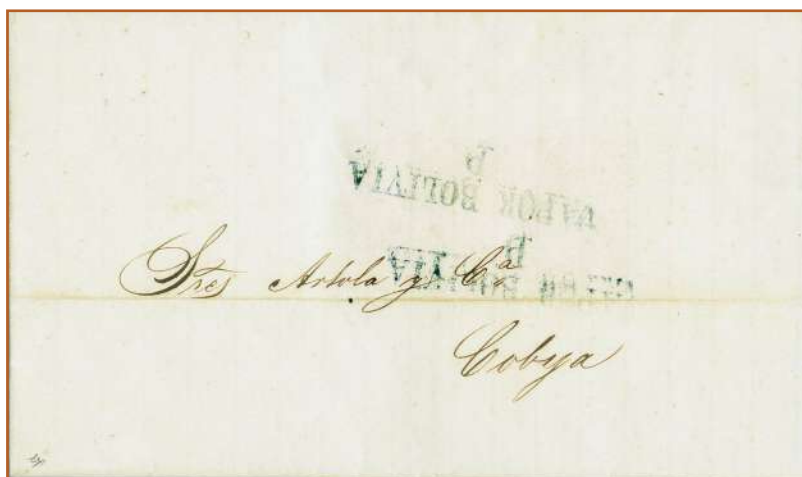 VAPOR BOLIVIA
P
BOLIVIA
P
Sres Artola y Cª
Cobija